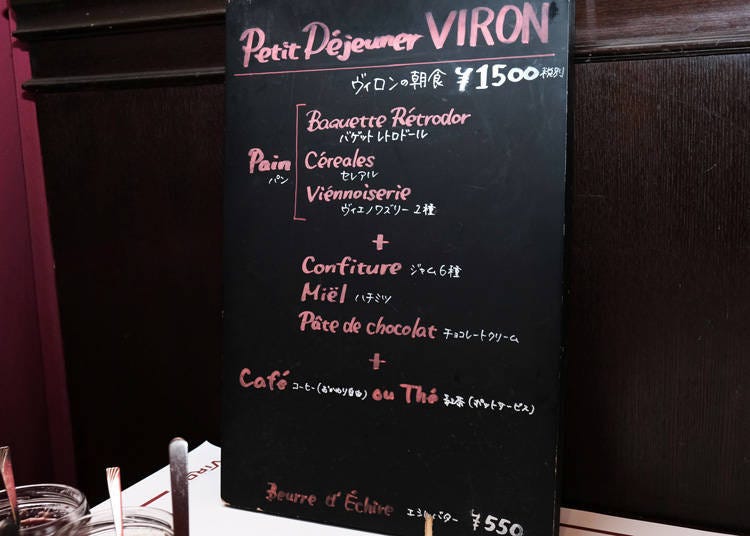 Petit Déjeuner VIRON
ヴィロンの朝食 ¥1500 税別
Baguette Rétrodor
バゲット レトロドール
Pain
パン
Céreales
セレアル
Viénnoiserie
ヴィエノワズリー 2種
+
Confiture ジャム6種
Miël ハチミツ
Pâte de chocolat チョコレートクリーム
+
Café コーヒー(おかわり自由) ou Thé 紅茶(ポットサービス)
Beurre d'Échire エシレバター ¥550